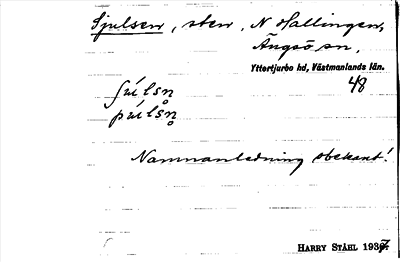 Sjulsen, sten, N Hallingen,
Ängsö sn,
Yttertjurbo hd, Västmanlands län.
48
Namnanledning obekant!
HARRY STÅHL 1937.